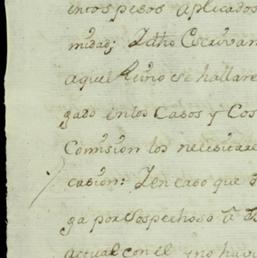 pesos aplicados
midad; Dicho Escrivan
aquel Reino se hallare
gado en los Casos y Cos
Comision los nesesicare
casion: Y en caso que
ga por sospechoso á
actual con el y no havi